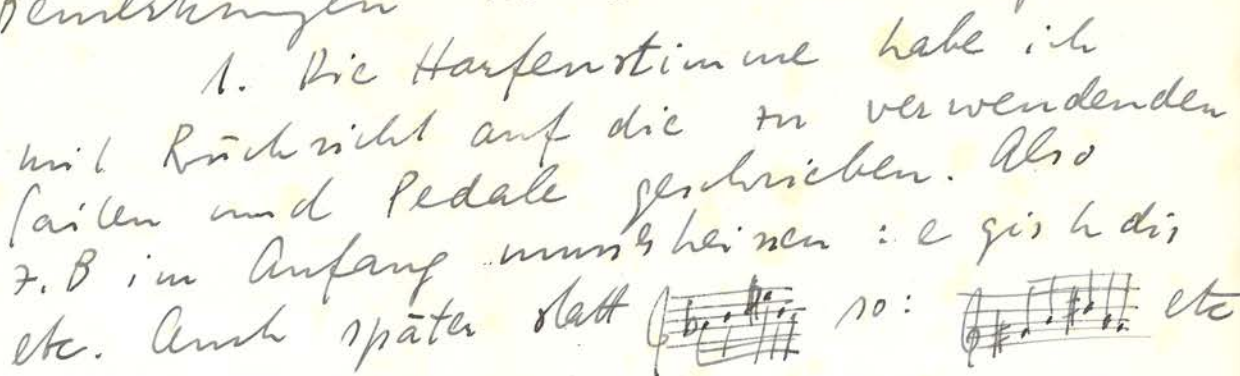 Bemerkungen
1. Die Harfenstimme habe ich
mit Rücksicht auf die zu verwendenden
Saiten und Pedale geschrieben. Also
z. B im Anfang muss heissen : e gis h dis
etc. Auch später statt so: etc